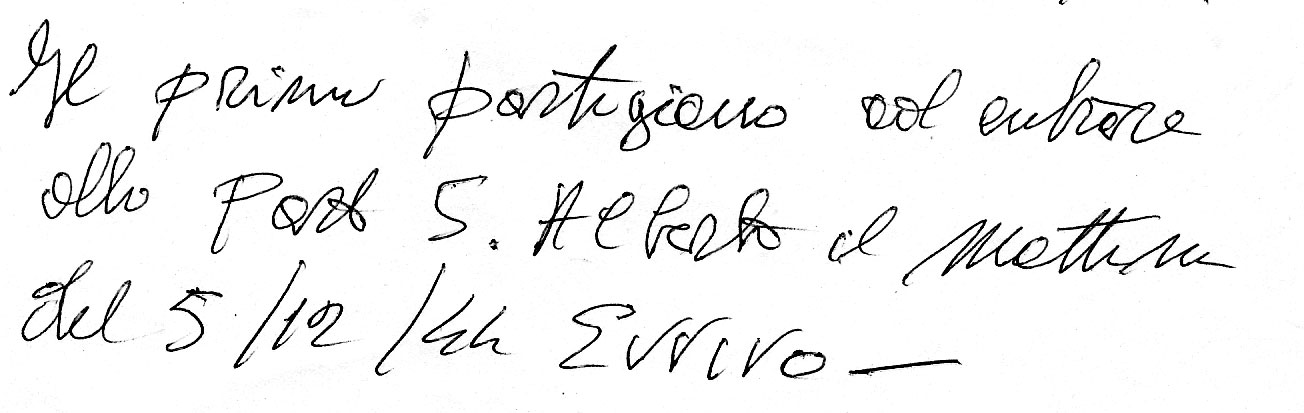 Il primo partigiano ad entrare
alla Porto S. Alberto il mattino
del 5/12/44 Evviva —